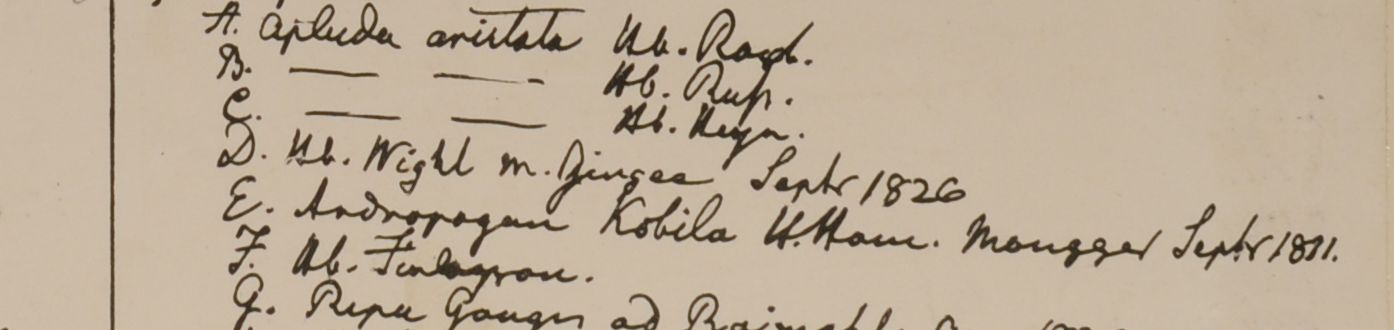 A. Apluda aristata Hb. Roxb.
B. — — Hb. Rup.
C. — — Hb. Heyn.
D. Hb. Wight m. Gingee Septr 1826
E. Andropogon Kobila H. Ham. Mongger Septr 1811.
F. Hb. Finlayson.
G. Ripa Gangis ad